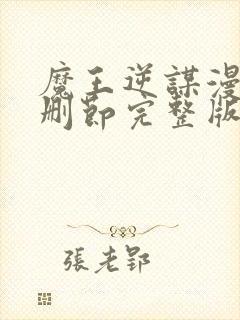 魔王逆謀漫
刪節完整版
張老郢